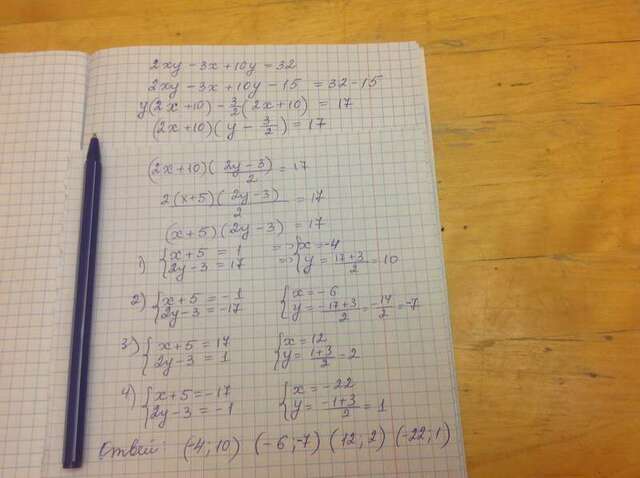 2xy - 3x + 10y = 32
2xy - 3x + 10y - 15 = 32 - 15
y(2x + 10) - 3/2 (2x + 10) = 17
(2x + 10)(y - 3/2) = 17
(2x + 10)((2y - 3)/2) = 17
2(x + 5)(2y - 3)/2 = 17
(x + 5)(2y - 3) = 17
1) { x + 5 = 1 => { x = -4
2y - 3 = 17 => y = (17 + 3)/2 = 10
2) { x + 5 = -1 { x = -6
2y - 3 = -17 y = (-17 + 3)/2 = -14/2 = -7
3) { x + 5 = 17 { x = 12
2y - 3 = 1 y = (1 + 3)/2 = 2
4) { x + 5 = -17 { x = -22
2y - 3 = -1 y = (-1 + 3)/2 = 1
Ответ: (-4; 10) (-6; -7) (12; 2) (-22; 1)